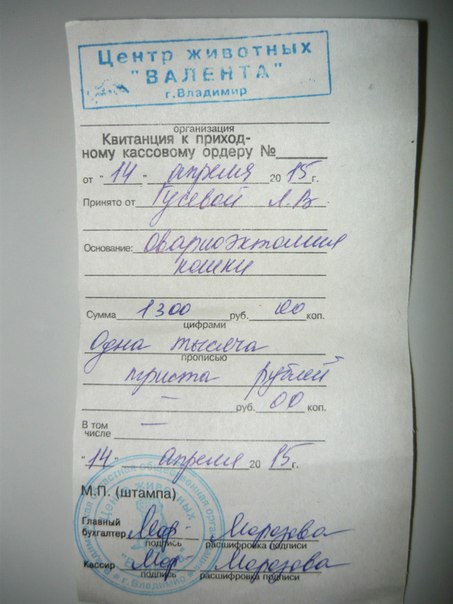 Центр животных
"ВАЛЕНТА"
г.Владимир
организация
Квитанция к приход-
ному кассовому ордеру №
от "14" апреля 2015г.
Принято от Гусевой Л.В
Основание: Овариоэктомия
кошки
Сумма 1300 руб. 00 коп.
цифрами
Одна тысяча
прописью
триста рублей
— руб. 00 коп.
В том
числе —
"14" апреля 2015г.
М.П. (штампа)
Главный
бухгалтер Мор Морозова
подпись расшифровка подписи
Кассир Мор Морозова
подпись расшифровка подписи
Центр животных
г.Владимир